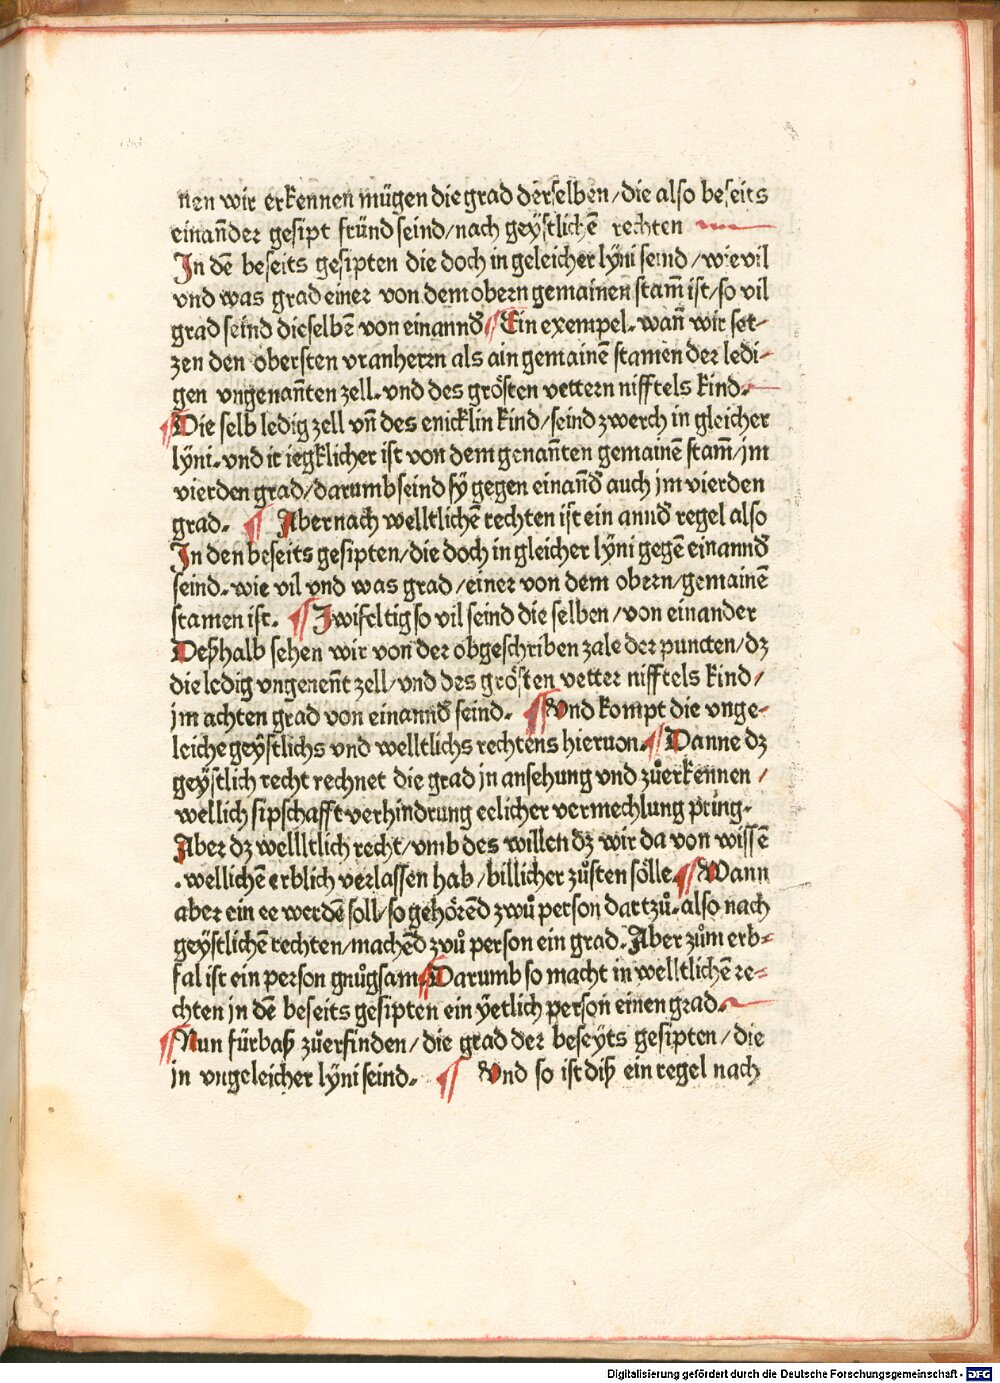 nen wir erkennen mügen die grad derselben/die also beseits
einañder gesipt fründ seind/nach geÿstlichē rechten
In dē beseits gesipten die doch in geleicher lÿni seind/wie vil
vnd was grad einer von dem obern gemainen stam̄ ist/so vil
grad seind dieselbē von einannd̄ Ein exempel. wan̄ wir set-
zen den obersten vranherrn als ain gemainē stamen der ledi-
gen vngenan̄ten zell. vnd des grȫsten vettern nifftels kind.
Die selb ledig zell vn̄ des enicklin kind/seind zwerch in gleicher
lÿni. vnd ir iegklicher ist von dem genan̄ten gemainē stam̄/jm
vierden grad/darumb seind sÿ gegen einan̄d̄ auch jm vierden
grad. Aber nach welltlichē rechten ist ein annd̄ regel also
In den beseits gesipten/die doch in gleicher lÿni gegē einannd̄
seind. wie vil vnd was grad/einer von dem obern/gemainē
stamen ist. Zwifeltig so vil seind die selben/von einander
Deßhalb sehen wir von der obgeschriben zale der puncten/dz
die ledig vngenen̄t zell/vnd des grösten vetter nifftels kind/
jm achten grad von einannd̄ seind. Vnd kompt die vnge-
leiche geÿstlichs vnd welltlichs rechtens hieruon. Danne dz
geÿstlich recht rechnet die grad jn ansehung vnd zůerkennen/
wellich sipschafft verhindrung eelicher vermechlung pring.
Aber dz wellltlich recht/vmb des willen dz wir da von wissē
.wellichē erblich verlassen hab/billicher zůsten sölle. Wann
aber ein ee werdē soll/so gehörēd zwů person dartzů. also nach
geÿstlichē rechten/machēd zvů person ein grad. Aber zům erb-
fal ist ein person gnůgsam Darumb so macht in welltlichē re-
chten jn dē beseits gesipten ein ÿetlich person einen grad.
Nun fürbaß zůerfinden/die grad der beseÿts gesipten/die
jn vngeleicher lÿni seind. Vnd so ist diß ein regel nach
Digitalisierung gefördert durch die Deutsche Forschungsgemeinschaft - DFG